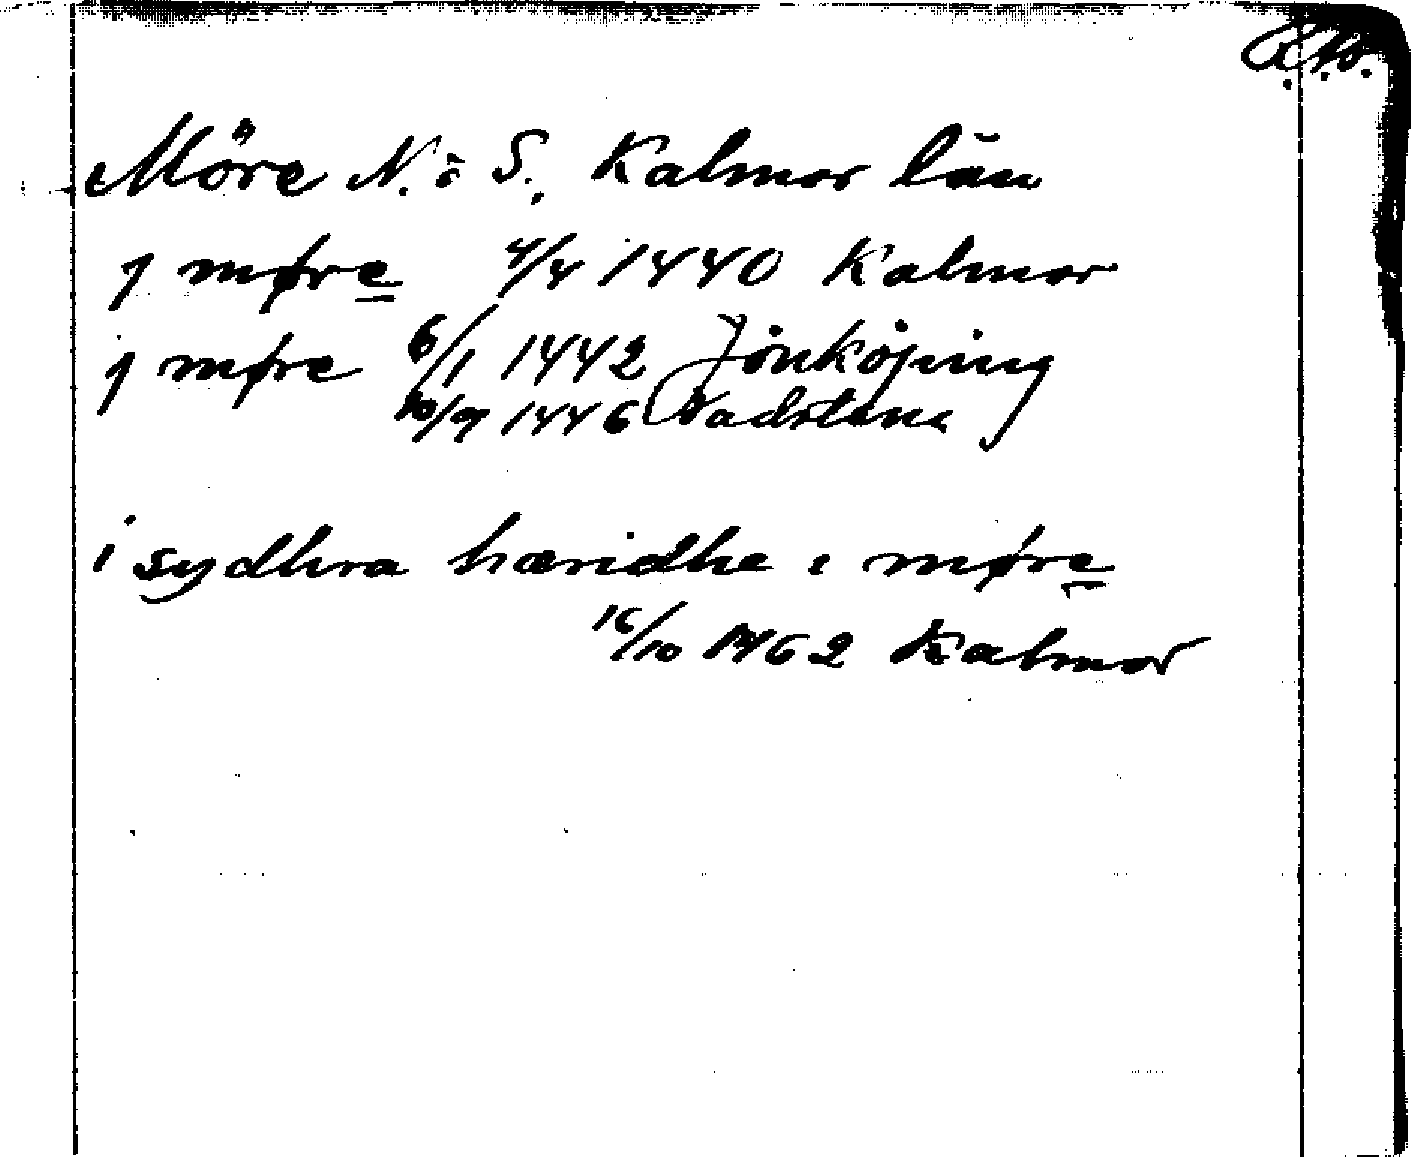 Möre N. o S., Kalmar län
j møre 4/4 1440 Kalmar
j møre 6/1 1442 Jönköping
10/9 1446 Vadstena
i sydhra hæridhe i møre
16/10 1462 Kalmar